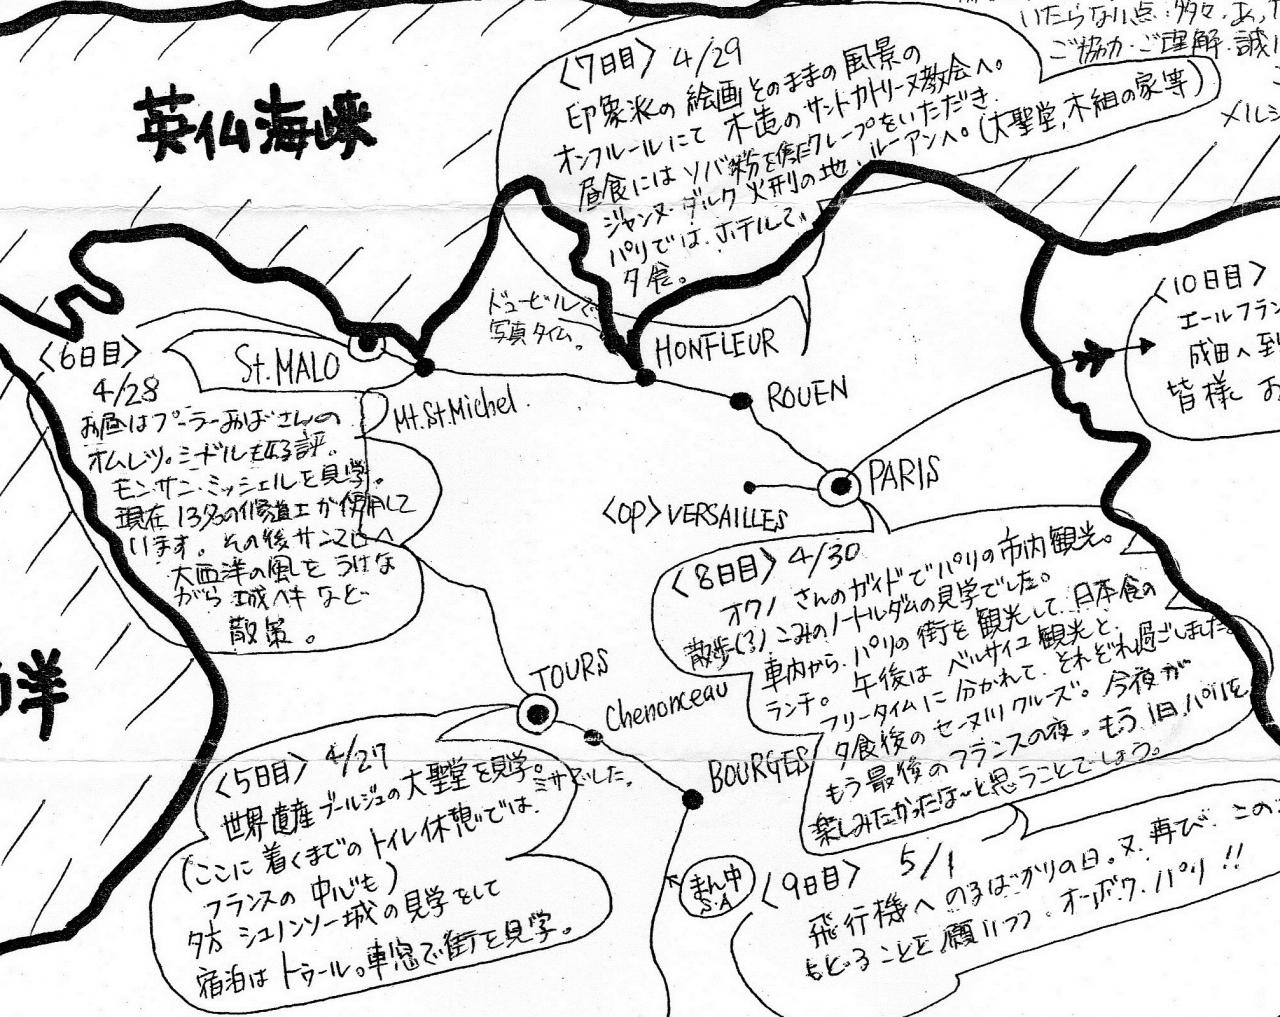 いたらない点.多々.あった
ご協力.ご理解.誠に
メルシ
英仏海峡
〈7日目〉 4/29
印象派の 絵画そのままの風景の
オンフルールにて 木造のサントカトリーヌ教会へ。
昼食にはソバ粉を使ったクレープをいただき
ジャンヌ・ダルク火刑の地、ルーアンへ。(大聖堂,木組の家等)
パリでは、ホテルで、
夕食。
ドュービルで
写真タイム。
〈10日目〉
エールフラン
成田へ到
皆様 お
〈6日目〉
4/28
お昼はプーラーおばさんの
オムレツ。ミドルも好評。
モン・サン・ミッシェルを見学。
現在 13名の修道士が使用して
います。その後サンマロへ
大西洋の風を うけな
がら 城ヘキ などー
散策。
St.MALO
Mt.St.Michel.
HONFLEUR
ROUEN
PARIS
〈OP〉VERSAILLES
〈8日目〉4/30
オクノ さんのガイドでパリの市内観光。
散歩(?)こみのノートルダムの見学でした。
車内から.パリの街を観光して、日本食の
ランチ。 午後は ベルサイユ観光と、
フリータイムに分かれて、それぞれ過ごしました。
夕食後のセーヌ川クルーズ。今夜が
もう最後のフランスの夜。もう1日パリを
楽しみたかったな〜と思うことでしょう。
洋
TOURS
Chenonceau
BOURGES
〈5日目〉 4/27
世界遺産ブールジュの大聖堂を見学。ミサでした。
(ここに着くまでのトイレ休憩では、
フランスの 中心も)
夕方 シュノンソー城の見学をして
宿泊は トゥール。車窓で街を見学。
まん中
S.A
〈9日目〉 5/1
飛行機へのるばかりの日。又、再び、この
もどることを願いつつ、オーボワ.パリ!!